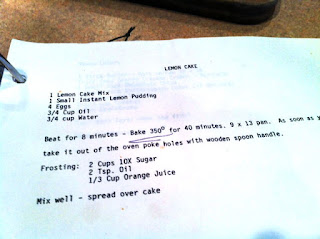 LEMON CAKE
1 Lemon Cake Mix
1 Small Instant Lemon Pudding
4 Eggs
3/4 cup Oil
3/4 cup Water
Beat for 8 minutes - Bake 350° for 40 minutes. 9 x 13 pan. As soon as y
take it out of the oven poke holes with wooden spoon handle.
Frosting: 2 Cups 10X Sugar
2 Tsp. Oil
1/3 Cup Orange Juice
Mix well - spread over cake